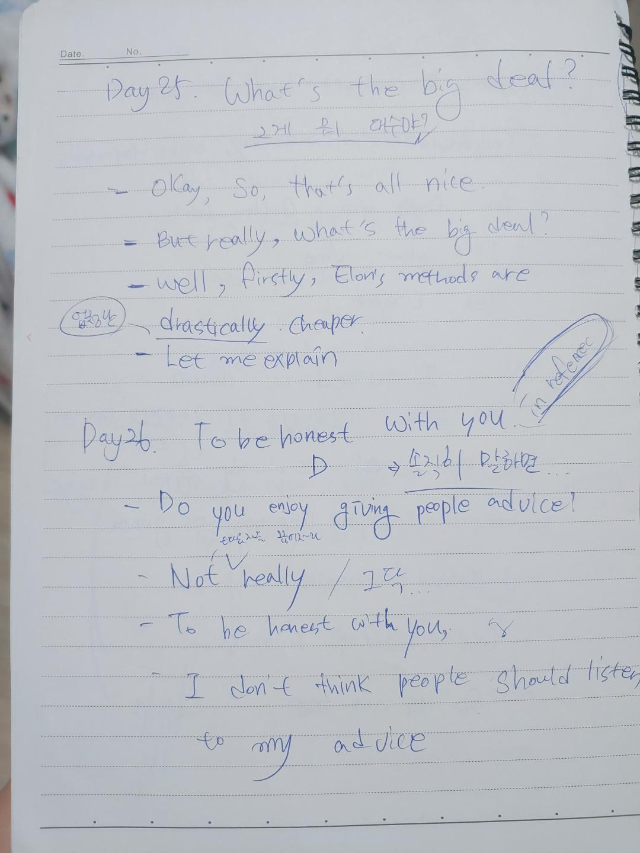 Date. No.
Day 25. What's the big deal?
그게 뭐 대수야?
- Okay, So, that's all nice.
- But really, What's the big deal?
- well, firstly, Elon's methods are
drastically cheaper.
- Let me explain
in referece
Day 26. To be honest with you.
D → 솔직히 말하면...
- Do you enjoy giving people advice?
- Not really / 그닥...
- To be honest with you,
- I don't think people should listen
to my advice